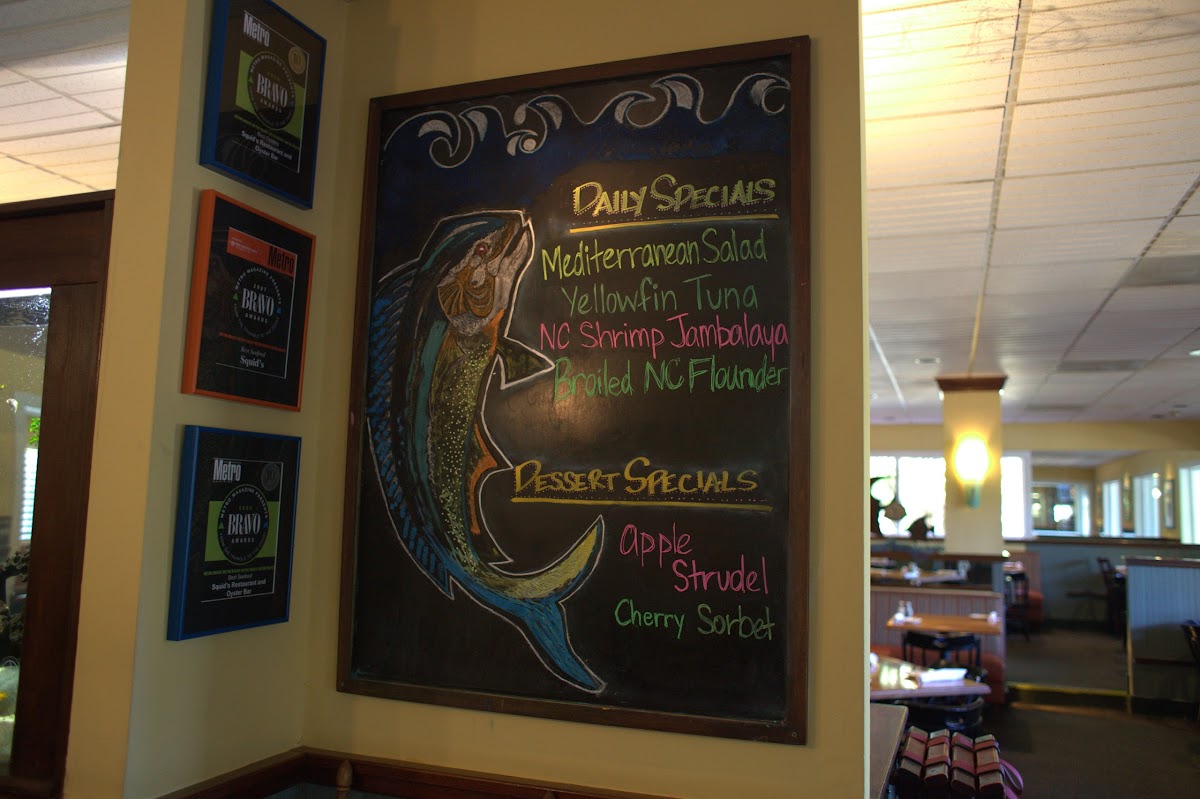 Metro
BRAVO
AWARDS
Squid's Restaurant and
Oyster Bar
Metro
METRO MAGAZINE PRESENTS
2007
BRAVO
AWARDS
Best Seafood
Squid's
Metro
METRO MAGAZINE PRESENTS
BRAVO
AWARDS
Best Seafood
Squid's Restaurant and
Oyster Bar
DAILY SPECIALS
Mediterranean Salad
Yellowfin Tuna
NC Shrimp Jambalaya
Broiled NC Flounder
DESSERT SPECIALS
Apple
Strudel
Cherry Sorbet